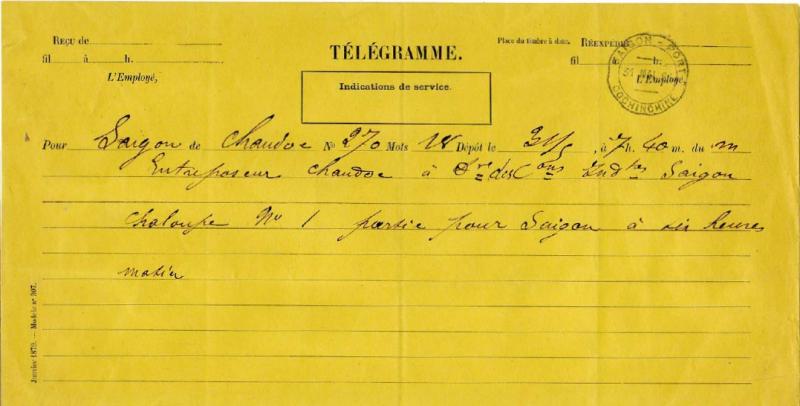 REÇU de
fil à h.
L'Employé,
TÉLÉGRAMME.
Indications de service.
Place du timbre à date.
RÉEXPÉDIÉ
fil h.
L'Employé,
SAIGON - PORT
31 MAI
COCHINCHINE
Pour Saigon de Chaudoc No 270 Mots 18 Dépôt le 31/5 à 7h. 40 m. du m
Entreposeur Chaudoc à Dre des Cons Indtes Saigon
chaloupe No 1 partie pour Saigon à six heures
matin
Janvier 1879. — Modèle no 307.